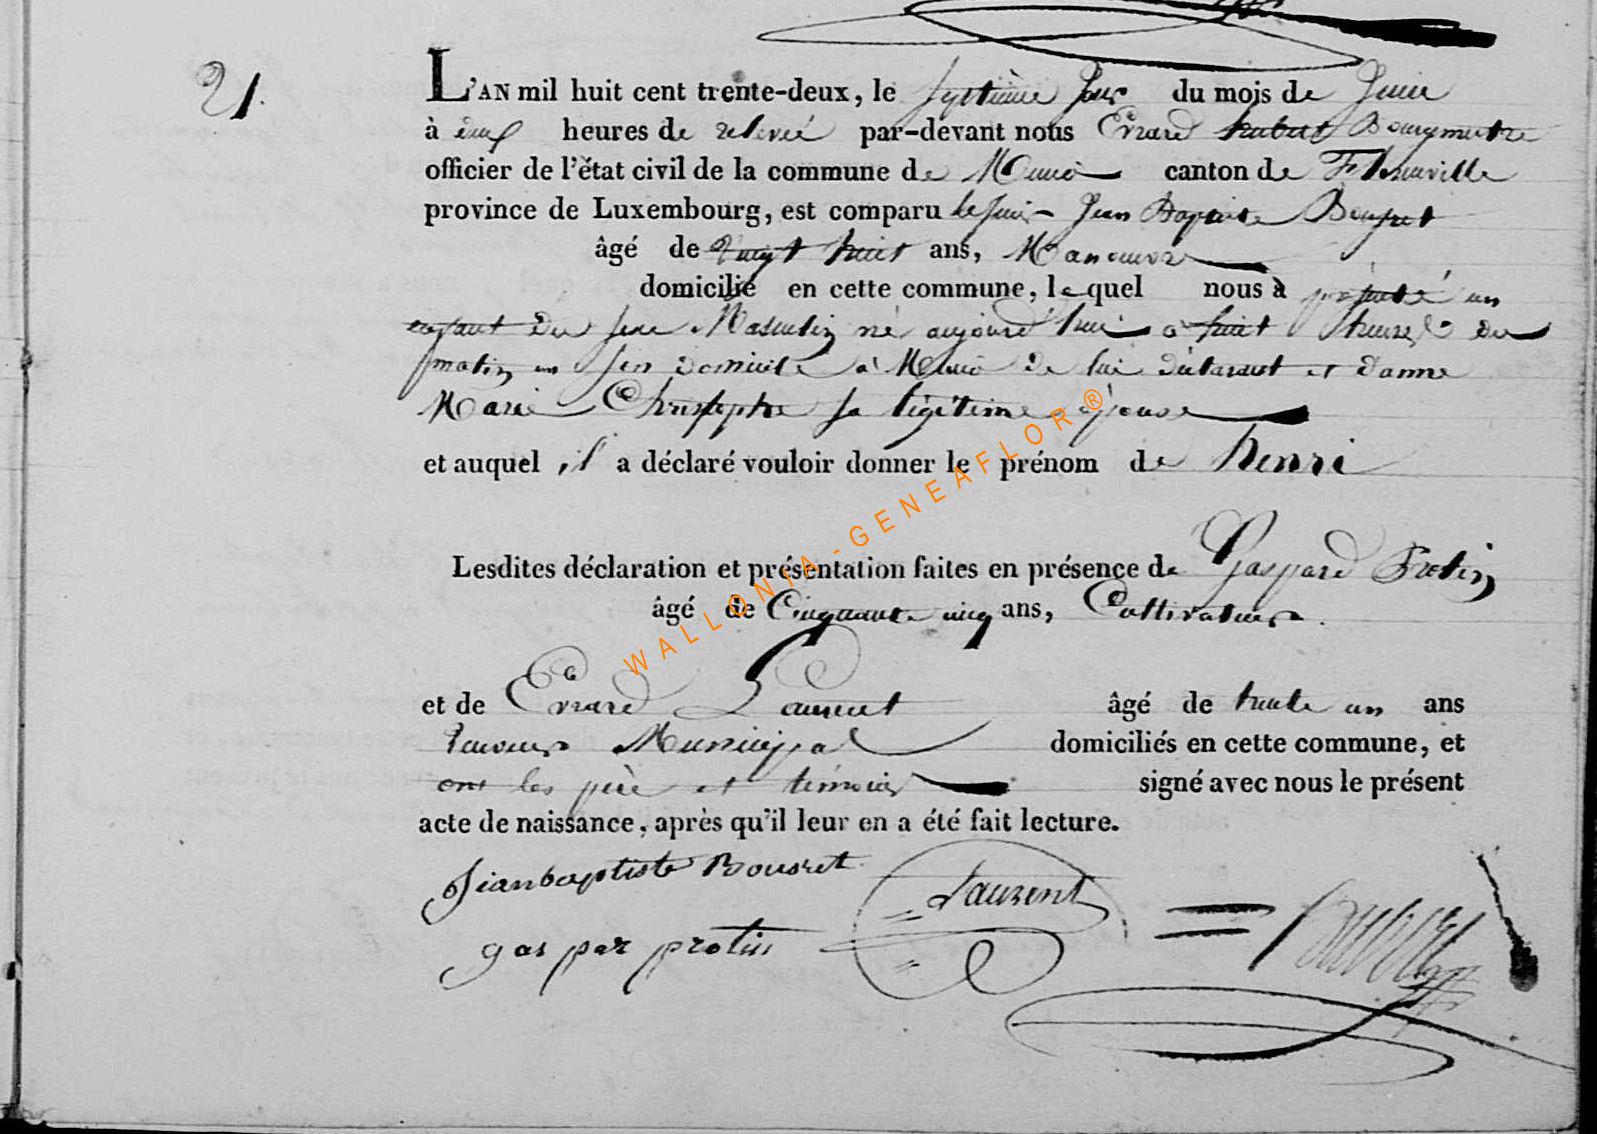 21.
L'AN mil huit cent trente-deux, le septième jour du mois de juin
à deux heures de relevée par-devant nous Evrard hubert Bourgmestre
officier de l'état civil de la commune de Muno canton de Florenville
province de Luxembourg, est comparu le Jean Baptiste Bousret
âgé de vingt huit ans, Manœuvre
domicilié en cette commune, lequel nous à présenté un
enfant du sexe Masculin né aujourd'hui à huit heures du
matin en son domicile à Muno de lui déclarant et danne
Marie Christophe sa légitime épouse
et auquel il a déclaré vouloir donner le prénom de henri
Lesdites déclaration et présentation faites en présence de Gaspard Protin
âgé de Cinquante cinq ans, Cultivateur.
et de Evrard Laurent âgé de trente un ans
Receveur Municipal domiciliés en cette commune, et
ont les père et témoins signé avec nous le présent
acte de naissance, après qu'il leur en a été fait lecture.
Jeanbaptiste Bousret
Laurent
gaspar protin
WALLONIA-GENEAFLOR®